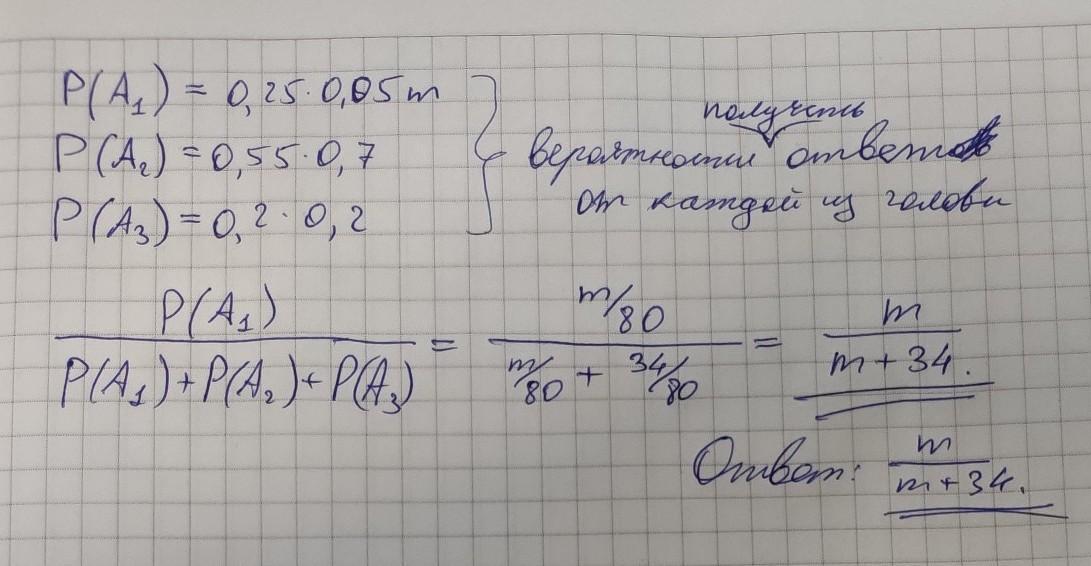 P(A₁) = 0,25 · 0,05m
P(A₂) = 0,55 · 0,7
P(A₃) = 0,2 · 0,2
получить
вероятности ответ
от каждой из головы
P(A₁) / (P(A₁) + P(A₂) + P(A₃)) = (m/80) / (m/80 + 34/80) = m / (m + 34).
Ответ: m / (m + 34).